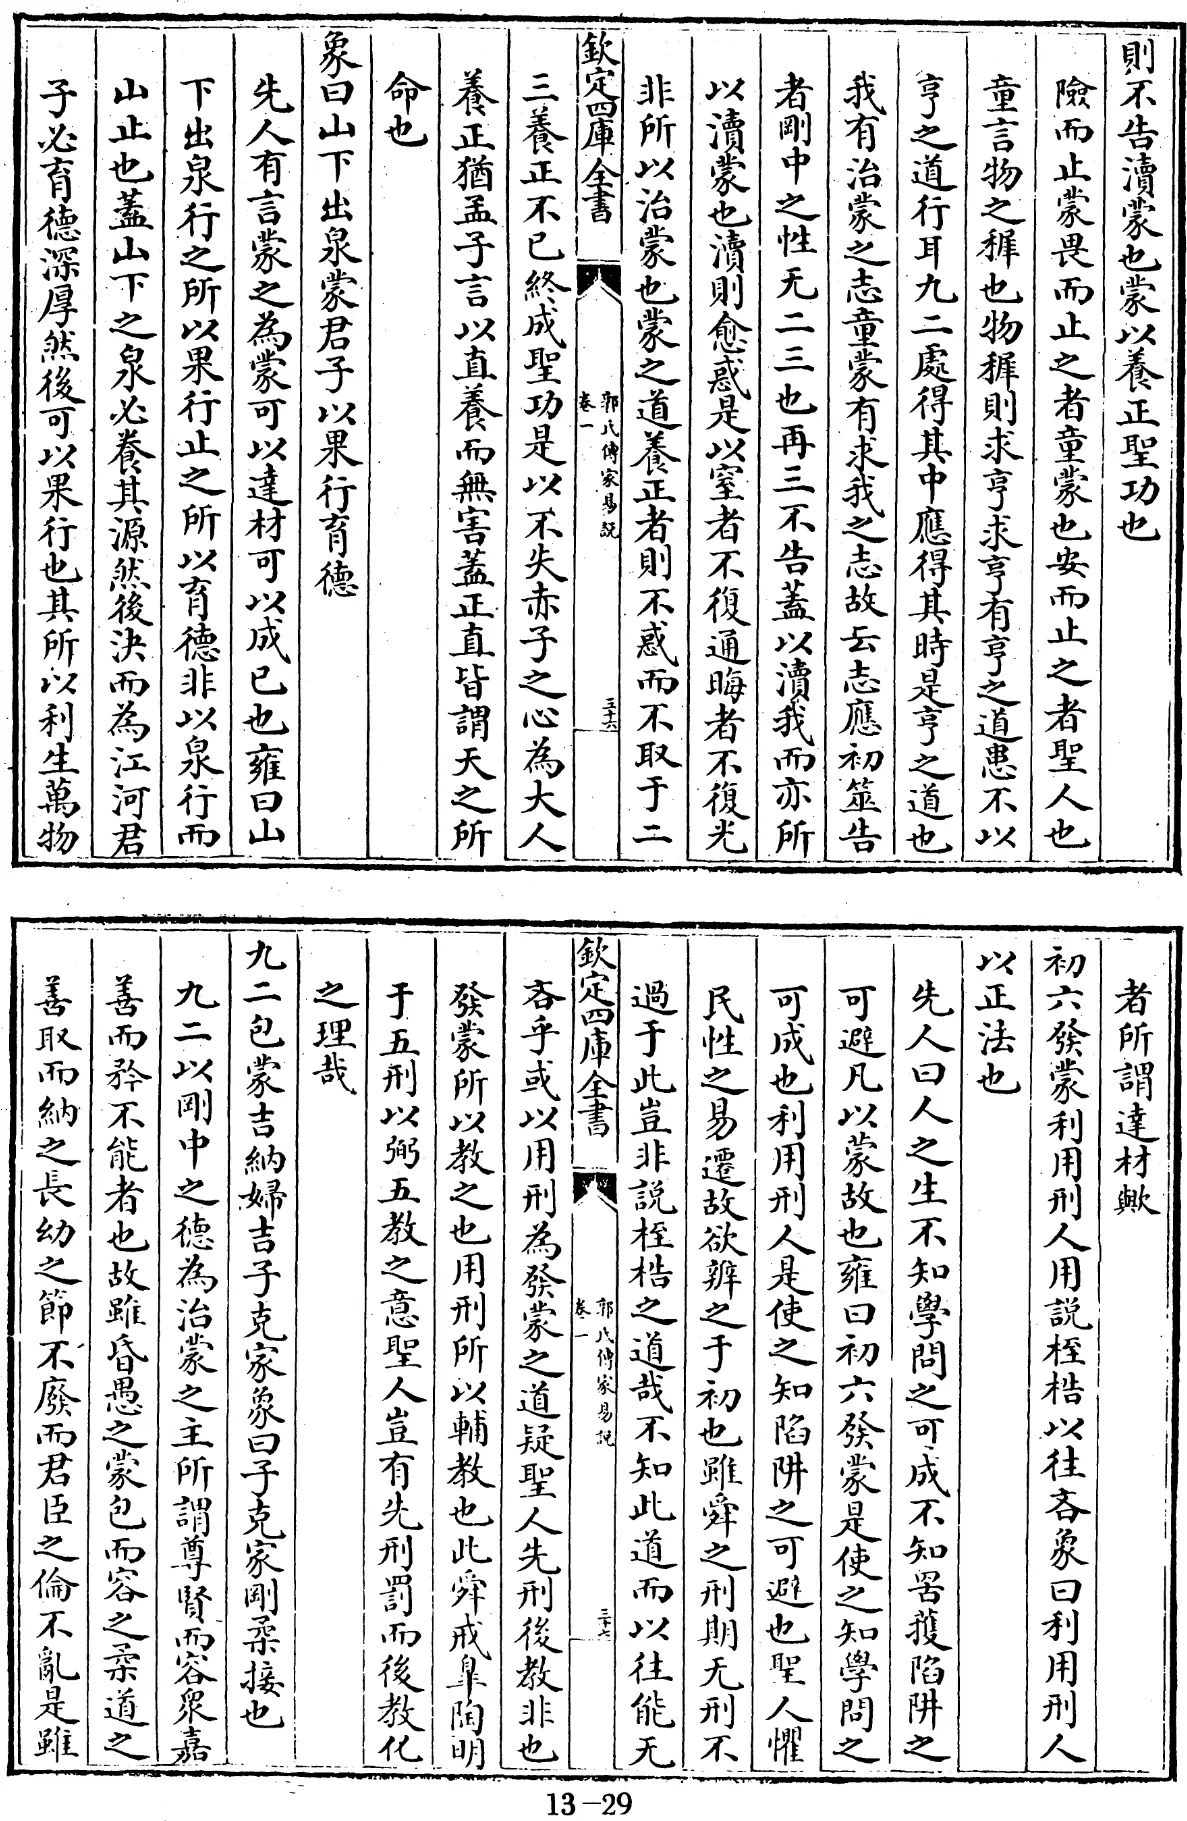 則不告瀆蒙也蒙以養正聖功也
險而止蒙畏而止之者童蒙也安而止之者聖人也
童言物之穉也物穉則求亨求亨有亨之道患不以
亨之道行耳九二處得其中應得其時是亨之道也
我有治蒙之志童蒙有求我之志故云志應初筮告
者剛中之性无二三也再三不告蓋以瀆我而亦所
以瀆蒙也瀆則愈惑是以窒者不復通晦者不復光
非所以治蒙也蒙之道養正者則不惑而不取于二
欽定四庫全書
郭氏傳家易說
卷一
三十六
三養正不已終成聖功是以不失赤子之心為大人
養正猶孟子言以直養而無害蓋正直皆謂天之所
命也
象曰山下出泉蒙君子以果行育德
先人有言蒙之為蒙可以達材可以成己也雍曰山
下出泉行之所以果行止之所以育德非以泉行而
山止也蓋山下之泉必養其源然後決而為江河君
子必育德深厚然後可以果行也其所以利生萬物
者所謂達材歟
初六發蒙利用刑人用說桎梏以往吝象曰利用刑人
以正法也
先人曰人之生不知學問之可成不知罟擭陷阱之
可避凡以蒙故也雍曰初六發蒙是使之知學問之
可成也利用刑人是使之知陷阱之可避也聖人懼
民性之易遷故欲辨之于初也雖舜之刑期无刑不
過于此豈非說桎梏之道哉不知此道而以往能无
欽定四庫全書
郭氏傳家易說
卷一
三十七
吝乎或以用刑為發蒙之道疑聖人先刑後教非也
發蒙所以教之也用刑所以輔教也此舜戒臯陶明
于五刑以弼五教之意聖人豈有先刑罰而後教化
之理哉
九二包蒙吉納婦吉子克家象曰子克家剛柔接也
九二以剛中之德為治蒙之主所謂尊賢而容衆嘉
善而矜不能者也故雖昏愚之蒙包而容之柔道之
善取而納之長幼之節不廢而君臣之倫不亂是雖
13-29